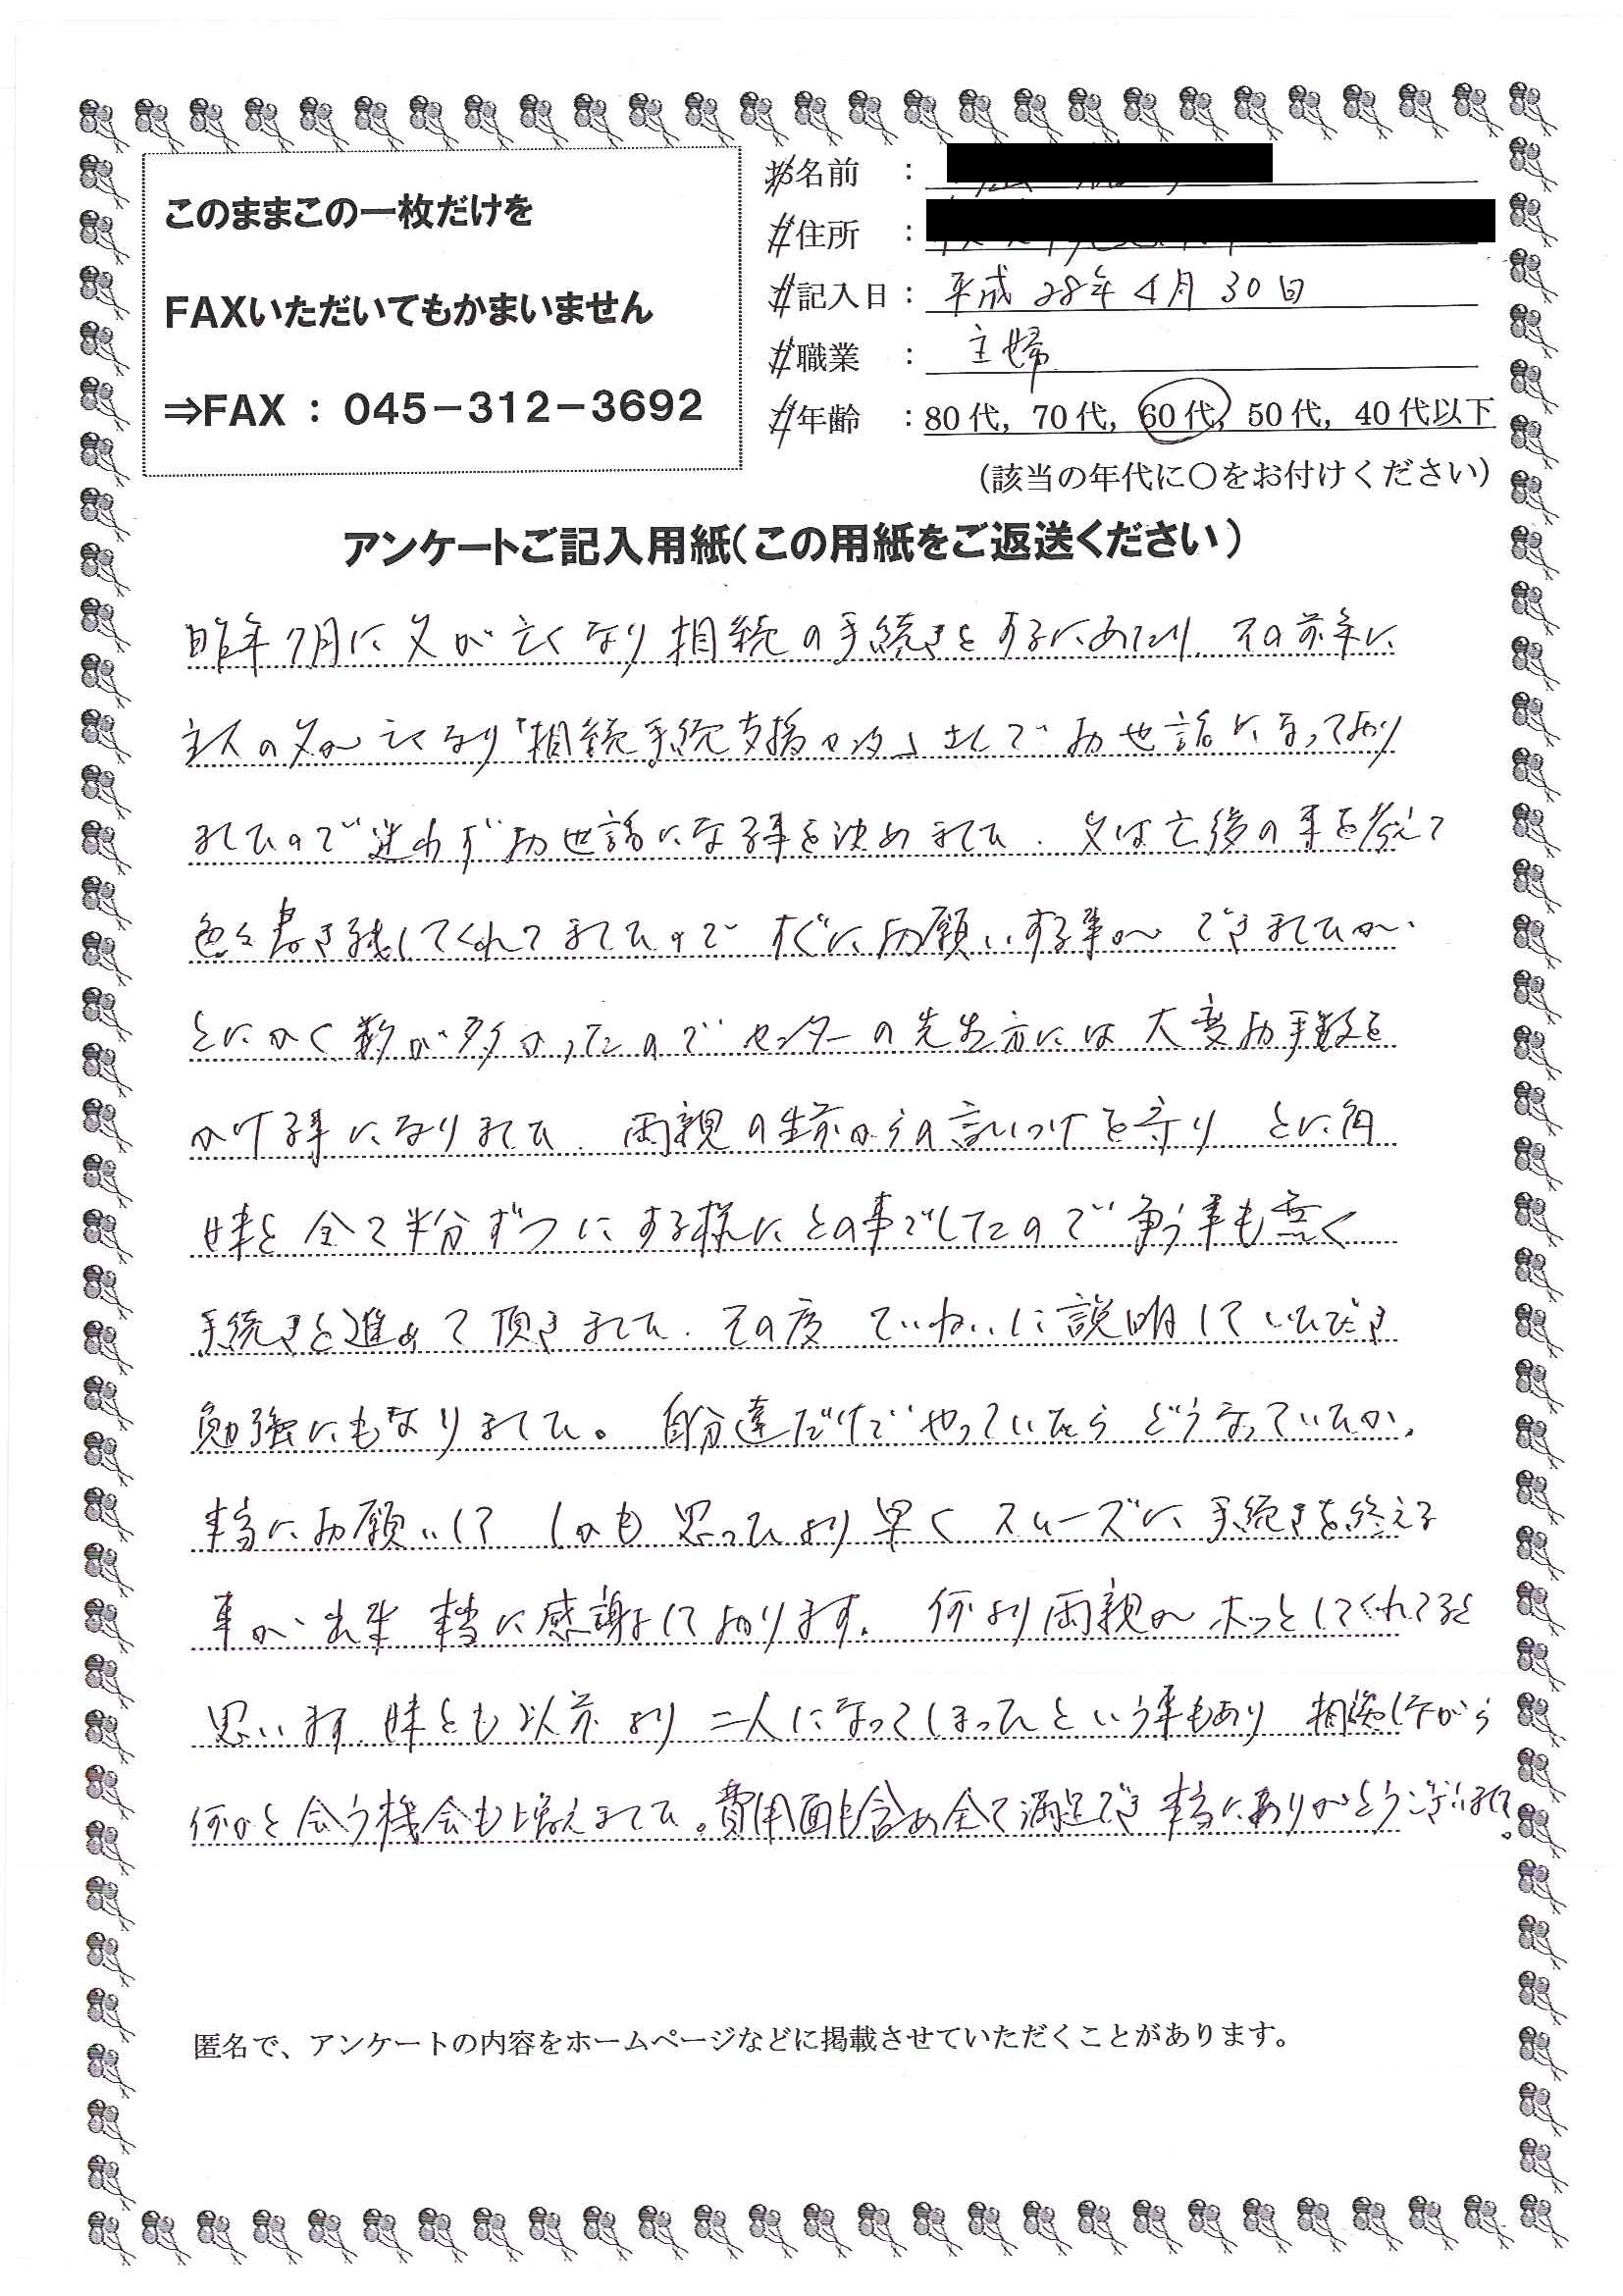 このままこの一枚だけを
FAXいただいてもかまいません
⇒FAX：045−312−3692
お名前：
ご住所：
ご記入日：平成28年4月30日
ご職業：主婦
ご年齢：80代，70代，60代，50代，40代以下
（該当の年代に〇をお付けください）
アンケートご記入用紙（この用紙をご返送ください）
昨年7月に父が亡くなり相続の手続きをするにあたり、その前年に
主人の父が亡くなり「相続手続支援センター」さんでお世話になっており
ましたので迷わずお世話になる事を決めました。父は亡後の事を考えて
色々書き残してくれてましたので すぐにお願いする事が できましたが、
とにかく数が多かったので センターの先生方には大変お手数を
かける事になりました。両親の生前からの言いつけを守り とに角
妹と全て半分ずつにする様にとの事でしたので争う事も無く
手続きを進めて頂きました。その度 ていねいに説明していただき
勉強にもなりました。自分達だけで やっていたら どうなっていたか、
本当にお願いして しかも思ったより早く スムーズに手続きを終える
事が出来 本当に感謝しております。何より両親が ホッとしてくれてると
思います。妹とも以前より 二人になってしまったという事もあり 相談しながら
何かと会う機会も増えました。費用面も含め全て満足でき 本当にありがとうございました。
匿名で、アンケートの内容をホームページなどに掲載させていただくことがあります。